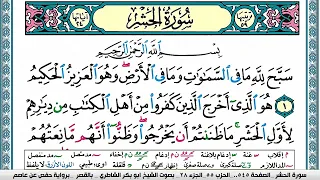 سُورَةُ الْحَشْرِ
بِسْمِ اللَّهِ الرَّحْمَٰنِ الرَّحِيمِ
سَبَّحَ لِلَّهِ مَا فِي السَّمَٰوَٰتِ وَمَا فِي الْأَرْضِ ۖ وَهُوَ الْعَزِيزُ الْحَكِيمُ
١ هُوَ الَّذِي أَخْرَجَ الَّذِينَ كَفَرُوا مِنْ أَهْلِ الْكِتَٰبِ مِن دِيَٰرِهِمْ
لِأَوَّلِ الْحَشْرِ ۚ مَا ظَنَنتُمْ أَن يَخْرُجُوا ۖ وَظَنُّوا أَنَّهُم مَّانِعَتُهُمْ
سورة الحشر الصفحة ٥٤٥، الحزب ٥٥، الجزء ٢٨ بصوت الشيخ أبو بكر الشاطري - بالتقرير - برواية حفص عن عاصم